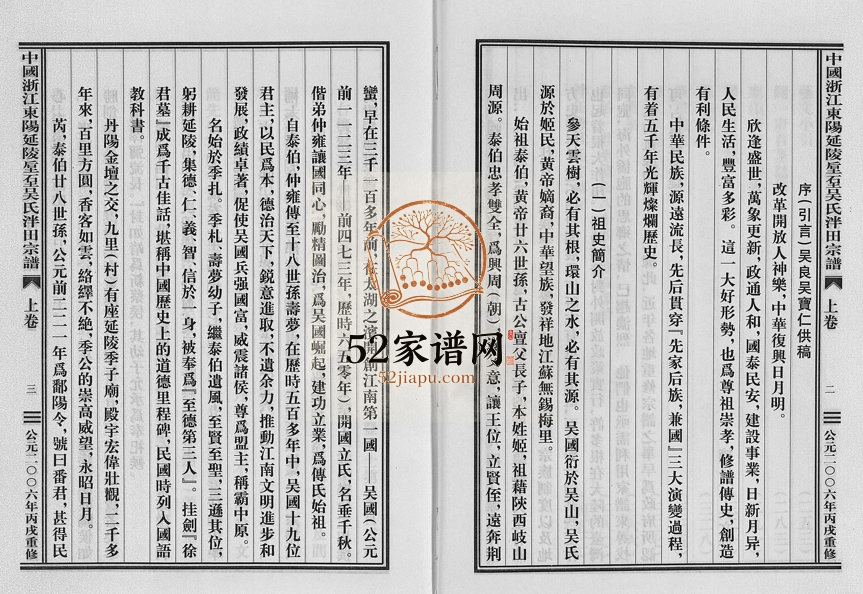 中國浙江東陽延陵堂至吳氏泮田宗譜
上卷
二
公元二〇〇六年丙戌重修
序（引言）吳良吳寶仁供稿
改革開放人神樂，中華復興日月明。
欣逢盛世，萬象更新，政通人和，國泰民安，建設事業，日新月异，
人民生活，豐富多彩。這一大好形勢，也爲尊祖崇孝，修譜傳史，創造
有利條件。
中華民族，源遠流長，先后貫穿『先家后族，兼國』三大演變過程，
有着五千年光輝燦爛歷史。
（一）祖史簡介
參天雲樹，必有其根，環山之水，必有其源。吳國衍於吳山，吳氏
源於姬民，黃帝嫡裔，中華望族，發祥地江蘇無錫梅里。
始祖泰伯，黃帝廿六世孫，古公亶父長子，本姓姬，祖藉陝西岐山
周源。泰伯忠孝雙全，爲興周（朝），意，讓王位，立賢侄，遠奔荆
蠻，早在三千一百多年前，在太湖之濱開創江南第一國——吳國（公元
前一二三三年——前四七三年，歷時六五零年），開國立氏，名垂千秋。
偕弟仲雍讓國同心，勵精圖治，爲吳國崛起，建功立業，爲傳氏始祖。
自泰伯，仲雍傳至十八世孫壽夢，在歷時五百多年中，吳國十九位
君主，以民爲本，德治天下，鋭意進取，不遺余力，推動江南文明進步和
發展，政績卓著，促使吳國兵强國富，威震諸侯，尊爲盟主，稱霸中原。
名始於季扎。季札、壽夢幼子，繼泰伯遺風，至賢至聖，三遜其位，
躬耕延陵，集德、仁、義、智、信於一身，被奉爲『至德第三人』。挂劍『徐
君墓』成爲千古佳話，堪稱中國歷史上的道德里程碑，民國時列入國語
教科書。
丹陽金壇之交，九里（村）有座延陵季子廟，殿宇宏偉壯觀，二千多
年來，百里方圓，香客如雲，絡繹不絶，季公的崇高威望，永昭日月。
芮，泰伯廿八世孫，公元前二二一年爲鄱陽令，號曰番君，甚得民
中國浙江東陽延陵堂至吳氏泮田宗譜
上卷
三
公元二〇〇六年丙戌重修
52家谱网
52jiapu.com